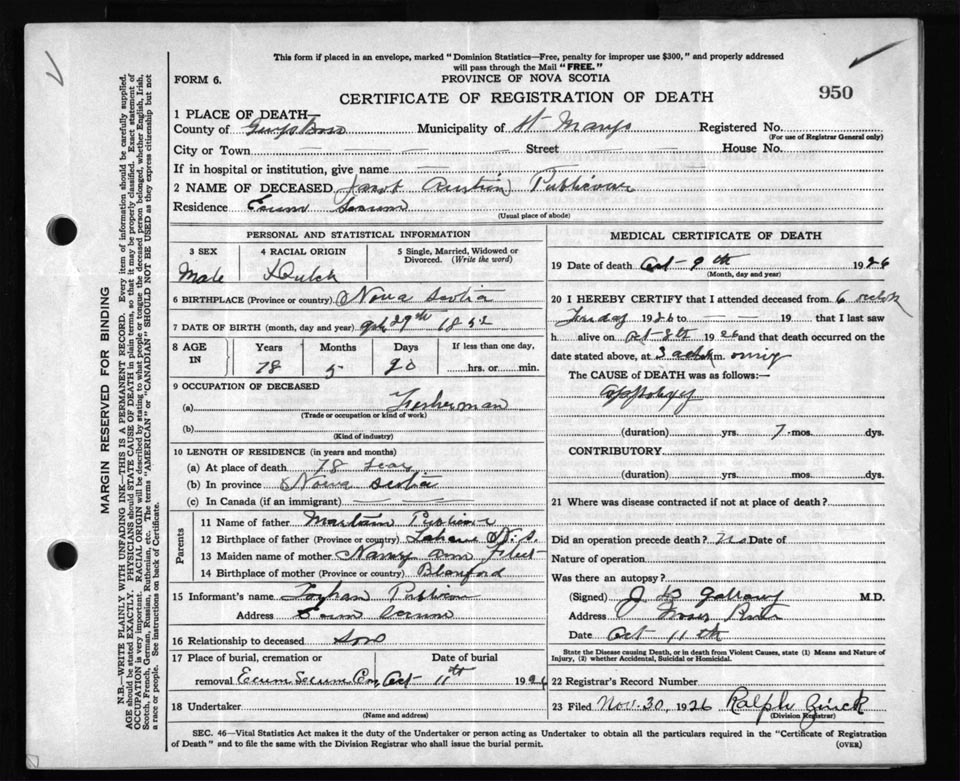 This form if placed in an envelope, marked "Dominion Statistics—Free, penalty for improper use $300," and properly addressed
will pass through the Mail "FREE."
FORM 6.
PROVINCE OF NOVA SCOTIA
CERTIFICATE OF REGISTRATION OF DEATH
950
1 PLACE OF DEATH—
County of Municipality of St Marys Registered No.
(For use of Registrar General only)
City or Town Street House No.
If in hospital or institution, give name
2 NAME OF DECEASED Publicover
Residence Ecum Secum
(Usual place of abode)
PERSONAL AND STATISTICAL INFORMATION
3 SEX 4 RACIAL ORIGIN 5 Single, Married, Widowed or Divorced. (Write the word)
Male Dutch
6 BIRTHPLACE (Province or country) Nova Scotia
7 DATE OF BIRTH (month, day and year) 29th
8 AGE IN Years Months Days If less than one day,
78 5 hrs. or min.
9 OCCUPATION OF DECEASED
(a) Fisherman
(Trade or occupation or kind of work)
(b)
(Kind of industry)
10 LENGTH OF RESIDENCE (in years and months)
(a) At place of death 78
(b) In province Nova Scotia
(c) In Canada (if an immigrant)
Parents
11 Name of father
12 Birthplace of father (Province or country) N. S.
13 Maiden name of mother Nancy Ann
14 Birthplace of mother (Province or country) Blanford
15 Informant's name
Address Ecum Secum
16 Relationship to deceased Son
17 Place of burial, cremation or removal Ecum Secum Date of burial Oct 11th 1926
18 Undertaker
(Name and address)
MEDICAL CERTIFICATE OF DEATH
19 Date of death Oct 9th 1926
(Month, day and year)
20 I HEREBY CERTIFY that I attended deceased from 6
1926 to 19 that I last saw
h alive on Oct 8th 1926 and that death occurred on the
date stated above, at 3 m.
The CAUSE of DEATH was as follows:—
(duration) yrs. 7 mos. dys.
CONTRIBUTORY
(duration) yrs. mos. dys.
21 Where was disease contracted if not at place of death?
Did an operation precede death? No Date of
Nature of operation
Was there an autopsy?
(Signed) M.D.
Address Moser River
Date Oct 11th
State the Disease causing Death, or in death from Violent Causes, state (1) Means and Nature of
Injury, (2) whether Accidental, Suicidal or Homicidal.
22 Registrar's Record Number
23 Filed Nov. 30, 1926 Ralph Zinck
(Division Registrar)
SEC. 46—Vital Statistics Act makes it the duty of the Undertaker or person acting as Undertaker to obtain all the particulars required in the "Certificate of Registration
of Death" and to file the same with the Division Registrar who shall issue the burial permit.
(OVER)
MARGIN RESERVED FOR BINDING
N.B.—WRITE PLAINLY WITH UNFADING INK—THIS IS A PERMANENT RECORD. Every item of information should be carefully supplied.
AGE should be stated EXACTLY. PHYSICIANS should STATE CAUSE OF DEATH in plain terms, so that it may be properly classified. Exact statement of
OCCUPATION is very important. RACIAL ORIGIN will be described by stating to what people or tongue the deceased person belonged, whether English, Irish,
Scotch, French, German, Russian, Ruthenian, etc. The terms "AMERICAN" or "CANADIAN" SHOULD NOT BE USED as they express citizenship but not
a race or people. See instructions on back of Certificate.